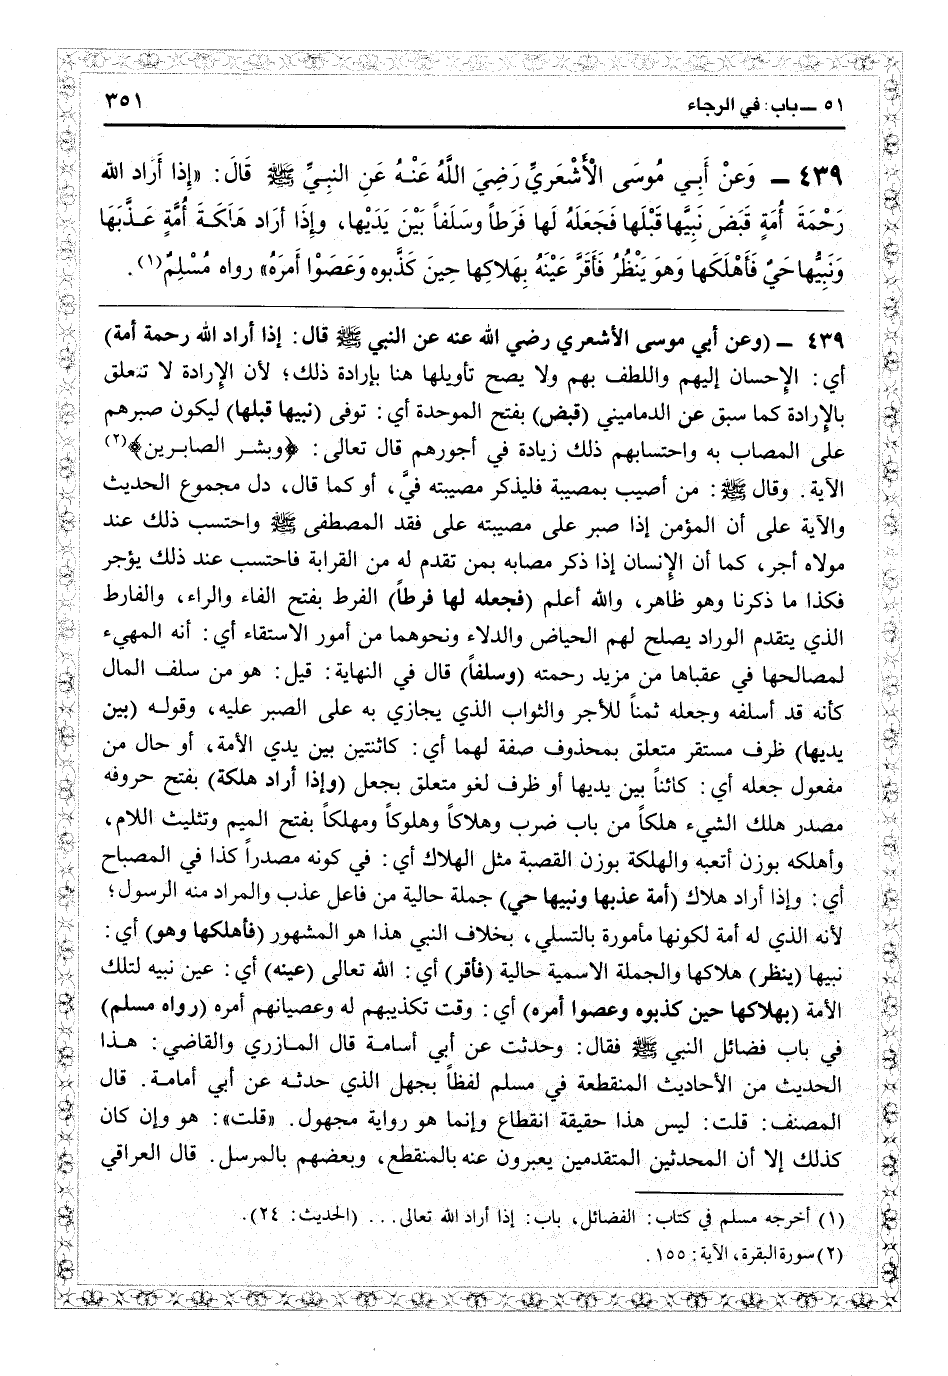 ٥١ ــ باب: في الرجاء ٣٥١
٤٣٩ ــ وَعَنْ أَبِي مُوسَى الْأَشْعَرِيِّ رَضِيَ اللَّهُ عَنْهُ عَنِ النبِيِّ ﷺ قَالَ: «إِذا أَرَادَ الله
رَحْمَةَ أُمَةٍ قَبَضَ نَبِيَّها قَبْلَها فَجَعَلَهُ لَها فَرَطاً وسَلَفاً بَيْنَ يَدَيْها، وإِذَا أرَاد هَلَكَةَ أُمَّةٍ عَذَّبَهَا
وَنَبِيُّها حَيٌ فَأَهْلَكَها وَهوَ يَنْظُرُ فَأَقَرَّ عَيْنَهُ بِهَلاكِها حِينَ كَذَّبوه وَعَصَوْا أَمرَهُ» رواه مُسْلِمٌ(١).
٤٣٩ ــ (وعن أبي موسى الأشعري رضي الله عنه عن النبي ﷺ قال: إذا أراد الله رحمة أمة)
أي: الإحسان إليهم واللطف بهم ولا يصح تأويلها هنا بإرادة ذلك؛ لأن الإرادة لا تتعلق
بالإرادة كما سبق عن الدماميني (قبض) بفتح الموحدة أي: توفى (نبيها قبلها) ليكون صبرهم
على المصاب به واحتسابهم ذلك زيادة في أجورهم قال تعالى: ﴿وبشر الصابرين﴾(٢)
الآية. وقال ﷺ: من أصيب بمصيبة فليذكر مصيبته فيَّ، أو كما قال، دل مجموع الحديث
والآية على أن المؤمن إذا صبر على مصيبته على فقد المصطفى ﷺ واحتسب ذلك عند
مولاه أجر، كما أن الإنسان إذا ذكر مصابه بمن تقدم له من القرابة فاحتسب عند ذلك يؤجر
فكذا ما ذكرنا وهو ظاهر، والله أعلم (فجعله لها فرطاً) الفرط بفتح الفاء والراء، والفارط
الذي يتقدم الوراد يصلح لهم الحياض والدلاء ونحوهما من أمور الاستقاء أي: أنه المهيء
لمصالحها في عقباها من مزيد رحمته (وسلفاً) قال في النهاية: قيل: هو من سلف المال
كأنه قد أسلفه وجعله ثمناً للأجر والثواب الذي يجازي به على الصبر عليه، وقوله (بين
يديها) ظرف مستقر متعلق بمحذوف صفة لهما أي: كائنتين بين يدي الأمة، أو حال من
مفعول جعله أي: كائناً بين يديها أو ظرف لغو متعلق بجعل (وإذا أراد هلكة) بفتح حروفه
مصدر هلك الشيء هلكاً من باب ضرب وهلاكاً وهلوكاً ومهلكاً بفتح الميم وتثليث اللام،
وأهلكه بوزن أتعبه والهلكة بوزن القصبة مثل الهلاك أي: في كونه مصدراً كذا في المصباح
أي: وإذا أراد هلاك (أمة عذبها ونبيها حي) جملة حالية من فاعل عذب والمراد منه الرسول؛
لأنه الذي له أمة لكونها مأمورة بالتسلي، بخلاف النبي هذا هو المشهور (فأهلكها وهو) أي:
نبيها (ينظر) هلاكها والجملة الاسمية حالية (فأقر) أي: الله تعالى (عينه) أي: عين نبيه لتلك
الأمة (بهلاكها حين كذبوه وعصوا أمره) أي: وقت تكذيبهم له وعصيانهم أمره (رواه مسلم)
في باب فضائل النبي ﷺ فقال: وحدثت عن أبي أسامة قال المازري والقاضي: هذا
الحديث من الأحاديث المنقطعة في مسلم لفظاً بجهل الذي حدثه عن أبي أمامة. قال
المصنف: قلت: ليس هذا حقيقة انقطاع وإنما هو رواية مجهول. «قلت»: هو وإن كان
كذلك إلا أن المحدثين المتقدمين يعبرون عنه بالمنقطع، وبعضهم بالمرسل. قال العراقي
(١) أخرجه مسلم في كتاب: الفضائل، باب: إذا أراد الله تعالى... (الحديث: ٢٤).
(٢) سورة البقرة، الآية: ١٥٥.